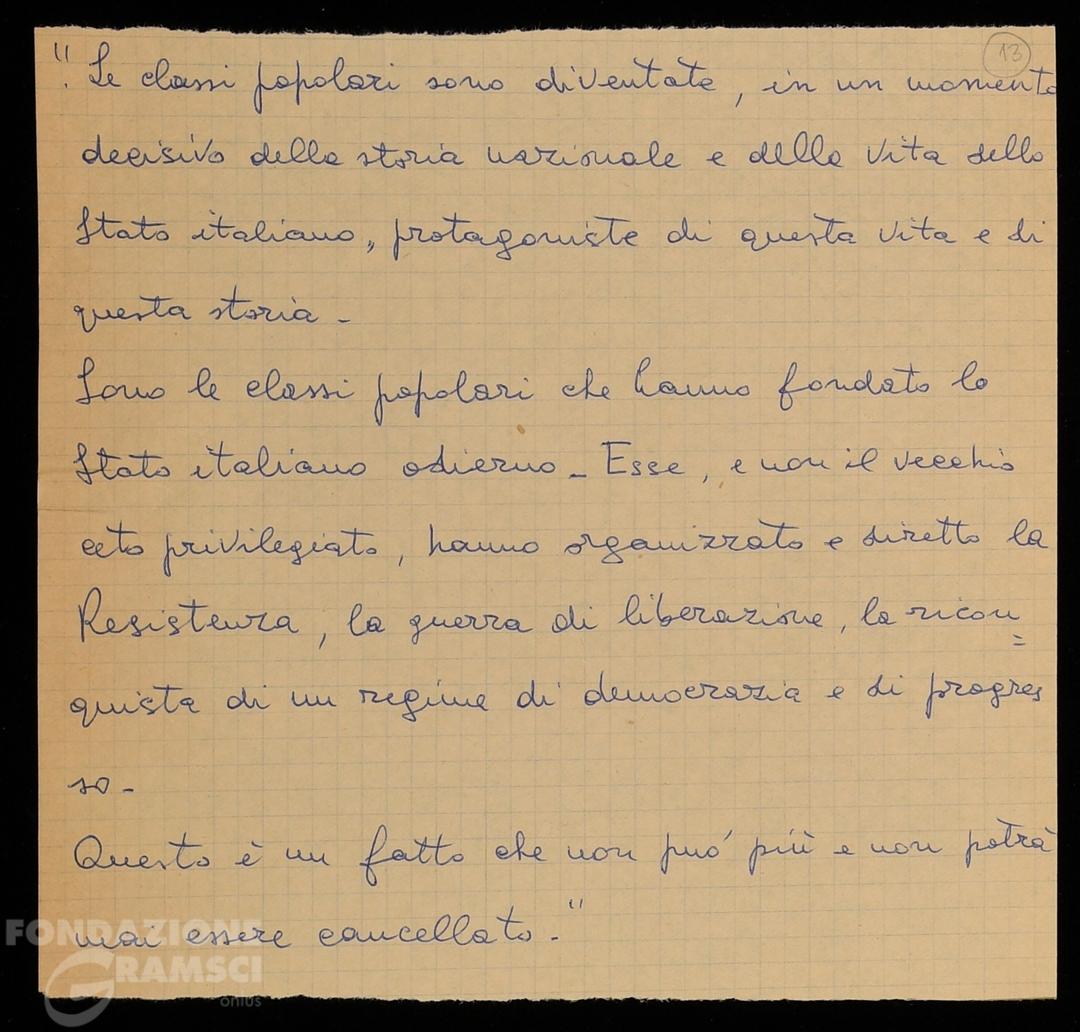 13
". Le classi popolari sono diventate, in un momento
decisivo della storia nazionale e della vita dello
Stato italiano, protagoniste di questa vita e di
questa storia -
Sono le classi popolari che hanno fondato lo
Stato italiano odierno - Esse, e non il vecchio
ceto privilegiato, hanno organizzato e diretto la
Resistenza, la guerra di liberazione, la ricon=
quista di un regime di democrazia e di progres
so -
Questo è un fatto che non può più e non potrà
mai essere cancellato."
FONDAZIONE
GRAMSCI
onlus